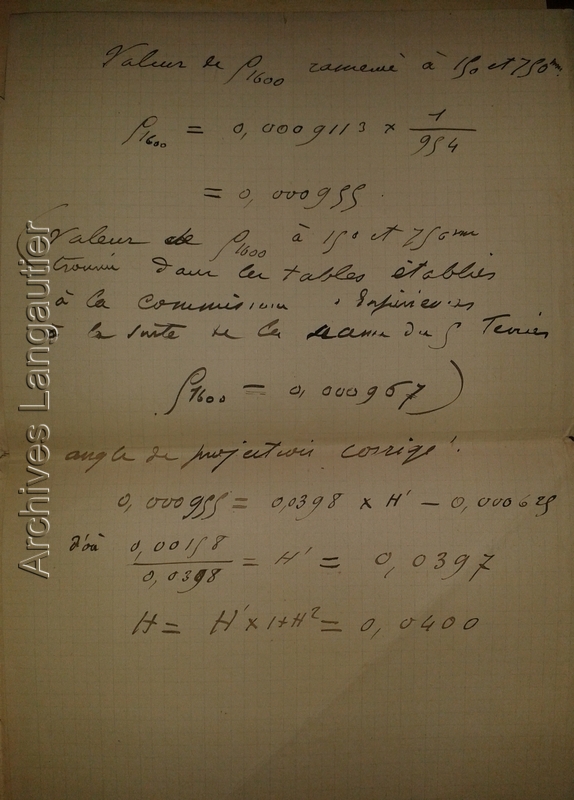 Valeur de ρ1600 ramenée à 15° et 750mm.
ρ1600 = 0,0009113 × 1/954
= 0,000955.
(Valeur de ρ1600 à 15° et 750mm
trouvée dans les tables établies
à la commission d'Expériences
à la suite de la du 5 Février
ρ1600 = 0,000967)
angle de projection corrigé.
0,000955 = 0,0398 × H' − 0,000625
d'où 0,00158/0,0398 = H' = 0,0397
H = H' × 1+H² = 0,0400
Archives Langautier